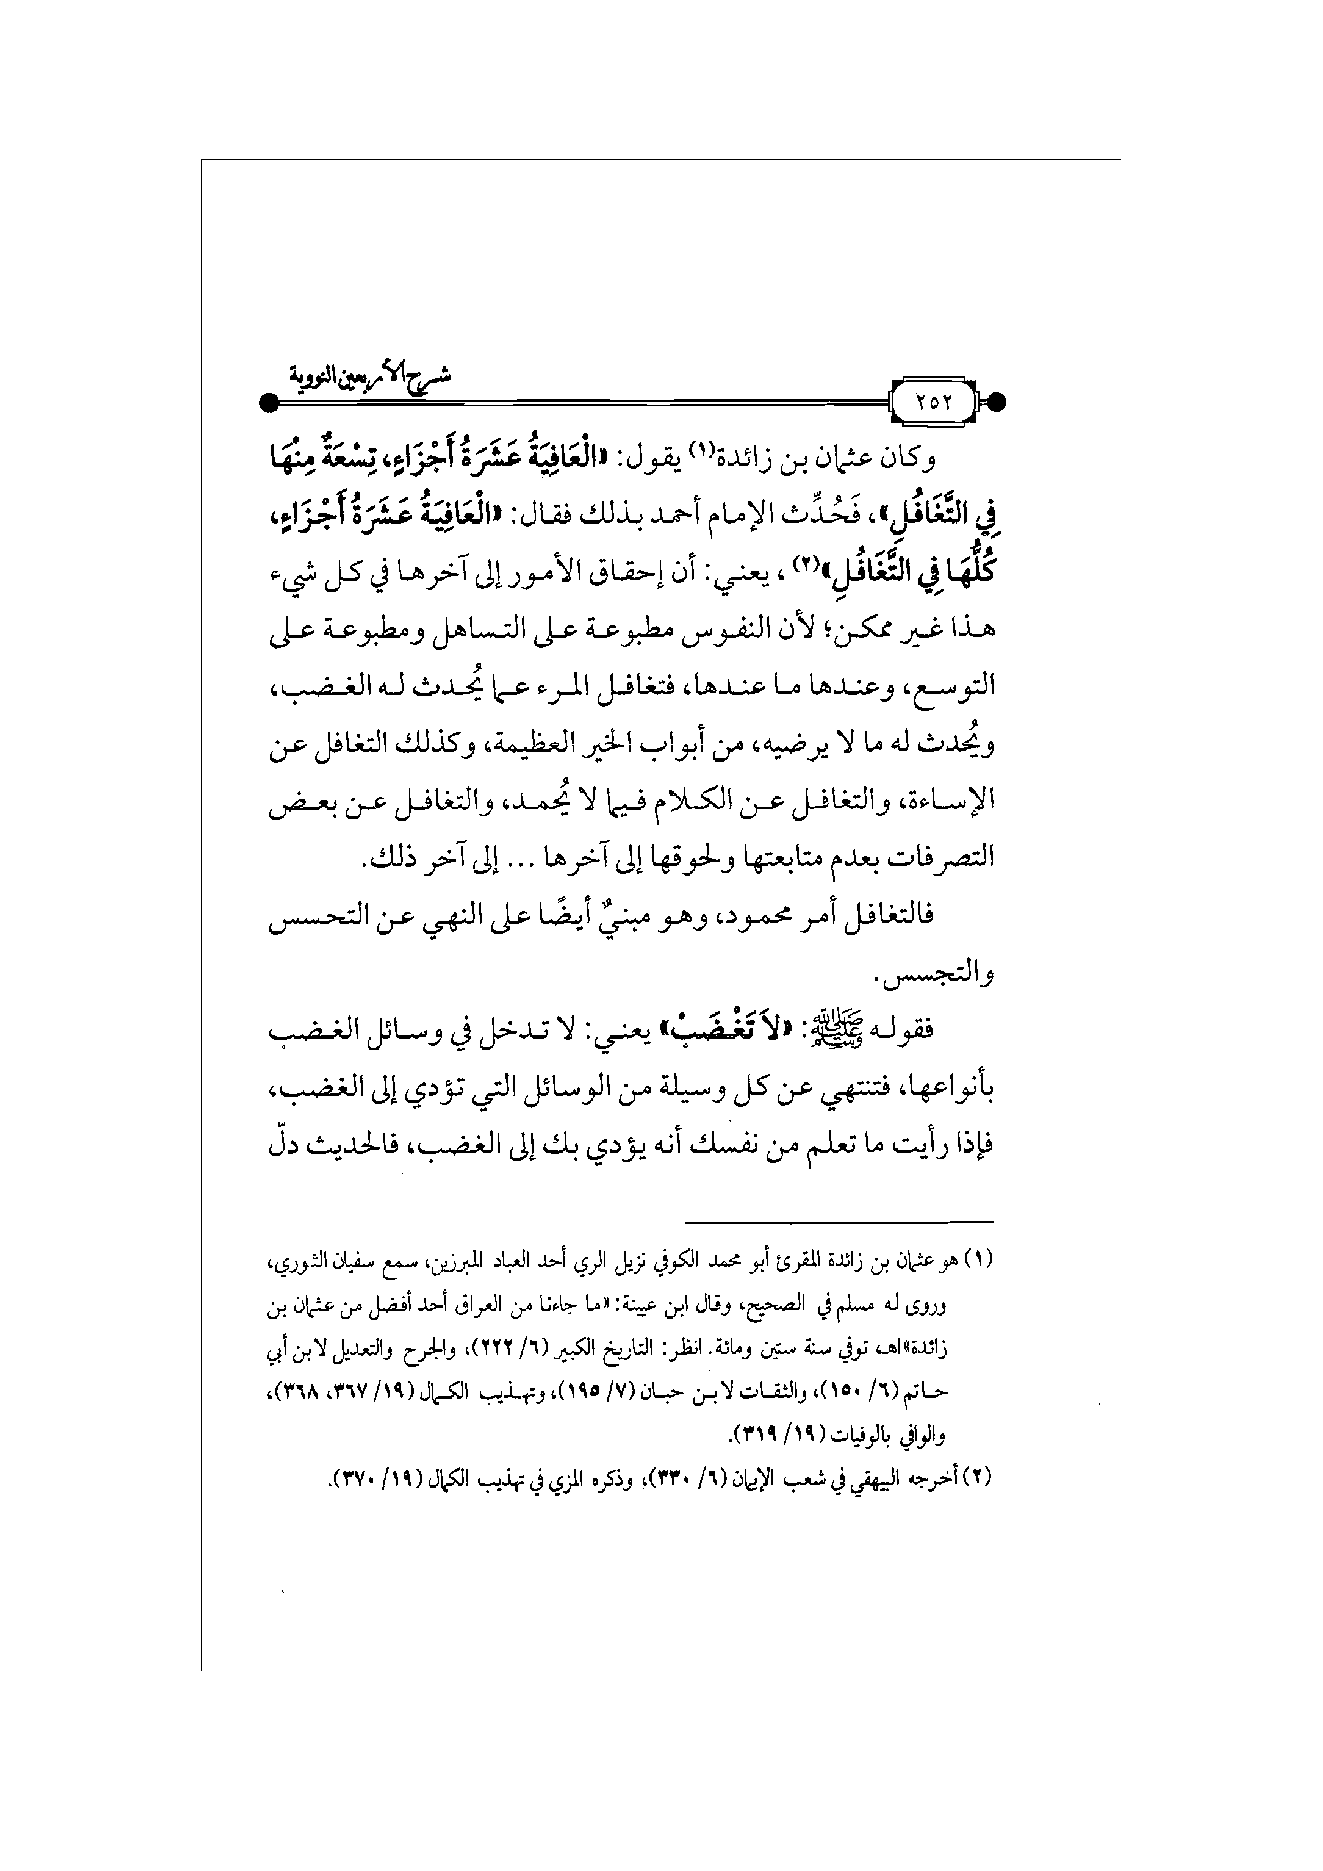 شرح الأربعين النووية
٢٥٢
وكان عثمان بن زائدة(١) يقول: «الْعَافِيَةُ عَشَرَةُ أَجْزَاءٍ، تِسْعَةٌ مِنْهَا
فِي التَّغَافُلِ»، فَحُدِّث الإمام أحمد بذلك فقال: «الْعَافِيَةُ عَشَرَةُ أَجْزَاءٍ،
كُلُّهَا فِي التَّغَافُلِ»(٢)، يعني: أن إحقاق الأمور إلى آخرها في كل شيء
هذا غير ممكن؛ لأن النفوس مطبوعة على التساهل ومطبوعة على
التوسع، وعندها ما عندها، فتغافل المرء عما يُحدث له الغضب،
ويُحدث له ما لا يرضيه، من أبواب الخير العظيمة، وكذلك التغافل عن
الإساءة، والتغافل عن الكلام فيما لا يُحمد، والتغافل عن بعض
التصرفات بعدم متابعتها ولحوقها إلى آخرها ... إلى آخر ذلك.
فالتغافل أمر محمود، وهو مبنيٌّ أيضًا على النهي عن التحسس
والتجسس.
فقوله ﷺ: «لاَ تَغْضَبْ» يعني: لا تدخل في وسائل الغضب
بأنواعها، فتنتهي عن كل وسيلة من الوسائل التي تؤدي إلى الغضب،
فإذا رأيت ما تعلم من نفسك أنه يؤدي بك إلى الغضب، فالحديث دلّ
(١) هو عثمان بن زائدة المقرئ أبو محمد الكوفي نزيل الري أحد العباد المبرزين، سمع سفيان الثوري،
وروى له مسلم في الصحيح، وقال ابن عيينة: «ما جاءنا من العراق أحد أفضل من عثمان بن
زائدة»اهـ، توفي سنة ستين ومائة. انظر: التاريخ الكبير (٦/ ٢٢٢)، والجرح والتعديل لابن أبي
حاتم (٦/ ١٥٠)، والثقات لابن حبان (٧/ ١٩٥)، وتهذيب الكمال (١٩/ ٣٦٧، ٣٦٨)،
والوافي بالوفيات (١٩/ ٣١٩).
(٢) أخرجه البيهقي في شعب الإيمان (٦/ ٣٣٠)، وذكره المزي في تهذيب الكمال (١٩/ ٣٧٠).